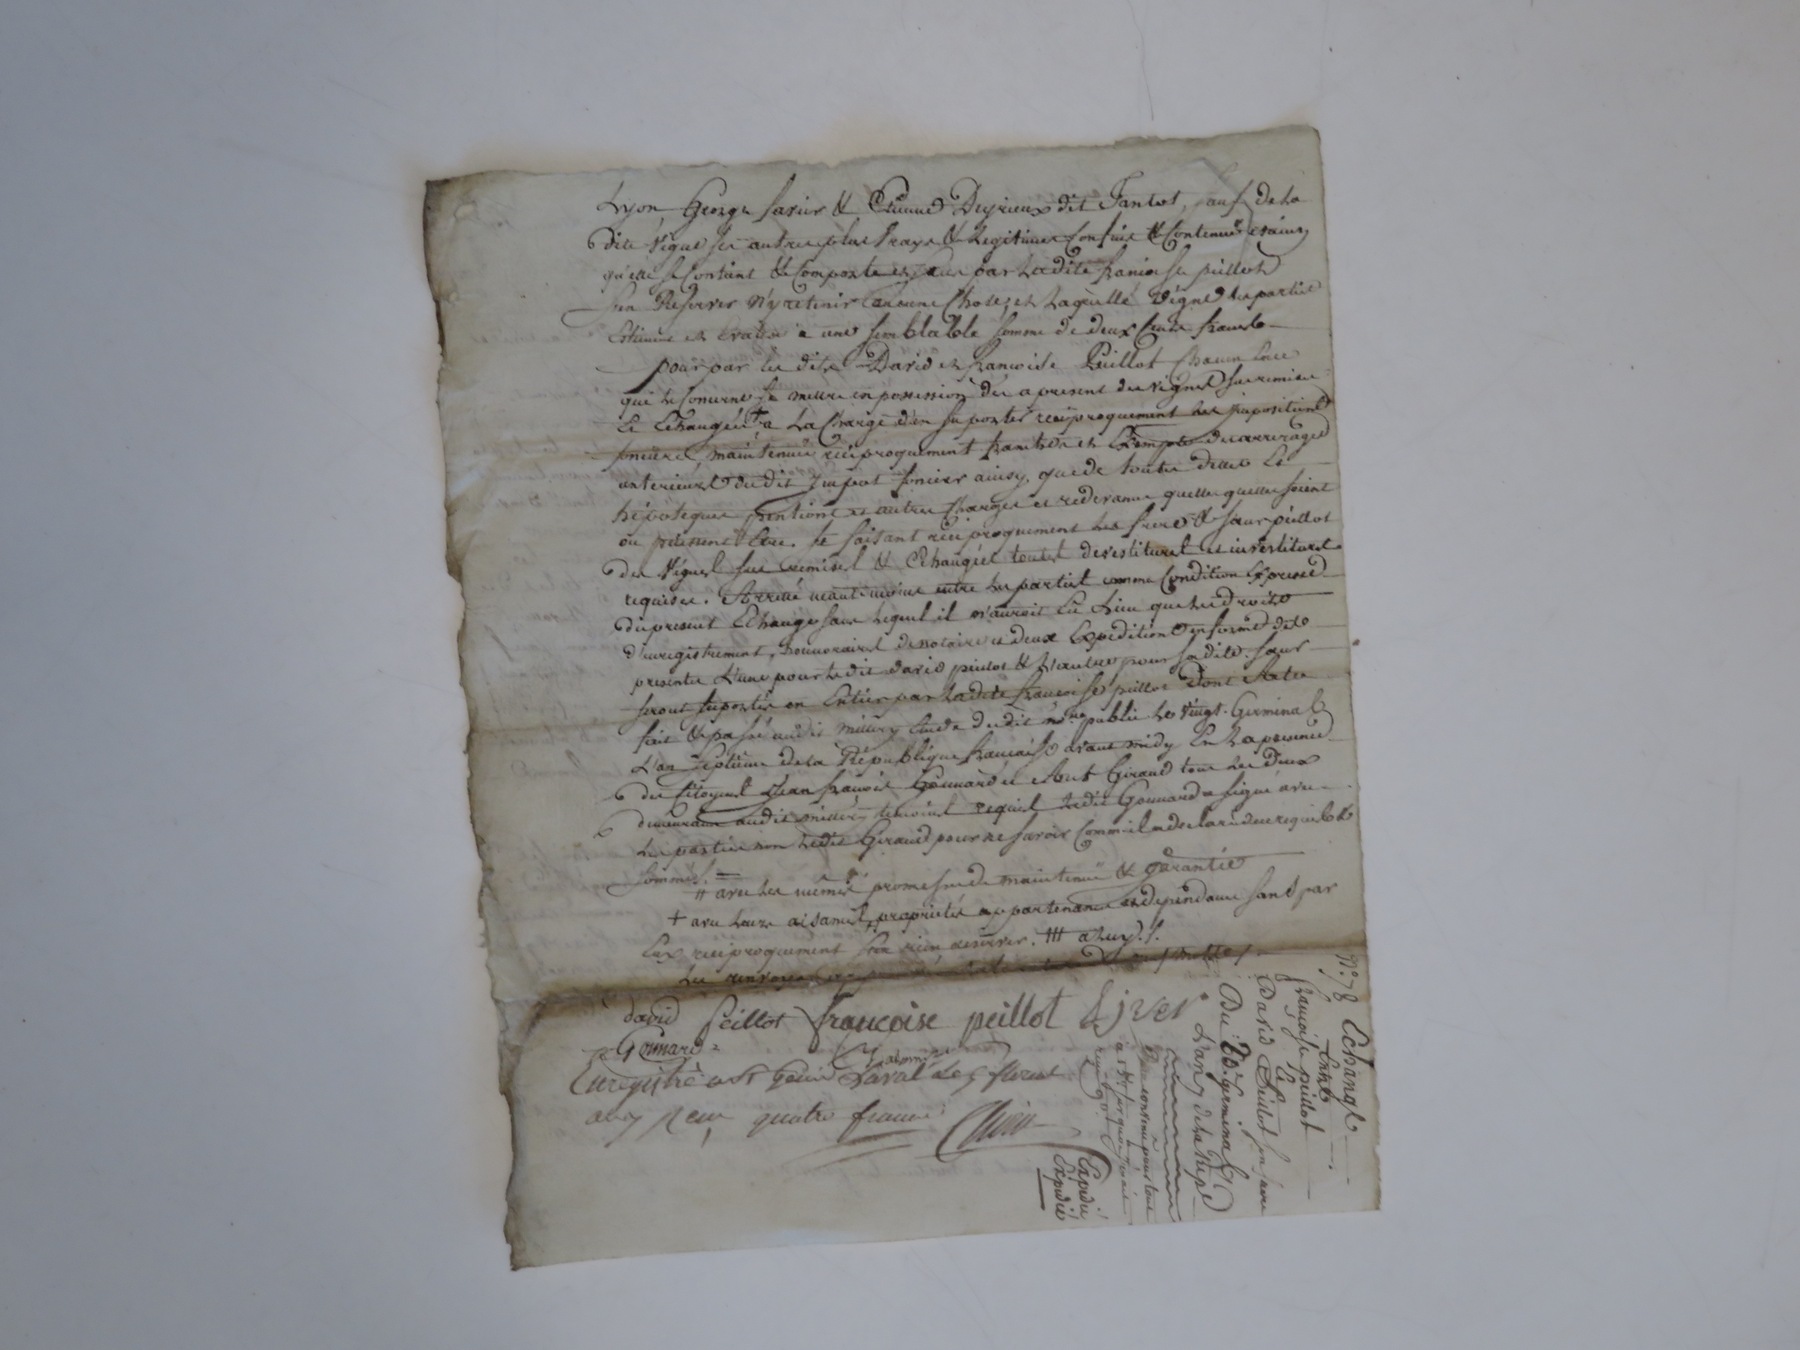 Lyon, George farier & Etienne Deyrieux dit Fantot, sauf de la
dite vigne ses autres plus vrays & Legitimes Confins & Contenue et ainsy
qu'elle se Contient & Comporte et sans par Ladite francoise peillot
s'en Reserver N'y retenir aucune Choses et Laquelle vigne les parties
Estimée et evaluée a une semblable somme de deux Cents francs
pour par les dits David et francoise Peillot Chacun En ce
qui le Concerne se mettre en possession des a present des vignes sus remises
Et Echangées † a La Charge d'en suporter reciproquement Les impositions
foncieres, maintenues reciproquement franches et Exemptes des arrerages
anterieurs du dit Impot foncier ainsy que de toutes dettes Et
hépoteques pentions et autres Charges et redevance quelles quelles soient
ou puissent Etre. se faisant reciproquement Les frere & sœur peillot
des vignes sus remises & Echangées toutes devestitures et investitures
requises. Arreté neantmoins entre Les parties comme Condition Expresse
du present Echange sans Lequel il n'auroit Eu Lieu que Les droits
d'enregistrement, honnoraires de notaire et deux Expeditions en forme des
presentes L'une pour Ledit david peillot & L'autre pour sadite sœur
seront suportés en Entier par Ladite francoise peillot dont Acte
fait & passé audit millery Etude dudit nore public Le vingt Germinal
L'an septieme de la République francaise avant midy En La presence
des Citoyens Jean francois Gonnard et Ant Giraud tous Les deux
demeurans audit millery temoins requis Ledit Gonnard a signé avec
Les parties non Ledit Giraud pour ne savoir Comme il a declaré de ce requis &
sommés =
# avec Les mêmes promesses de maintenue & garantie
+ avec Leurs aisances, proprietés appartenances et dependances sans par
Eux reciproquement s'en rien reserver. ## a Luy
Les renvoyes
david Peillot françoise peillot
Gonnard
Enregistré a St Genis Laval Le
an 7 Reçu quatre francs
N° 78 Echange
Entre
francoise peillot
Et
David Peillot son frere
Du 20 Germinal
L'an 7 de la Repe
Expedié
Expedié